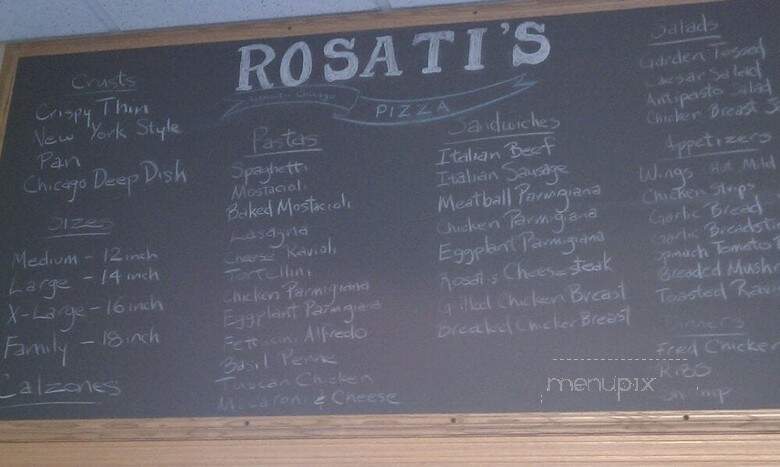 ROSATI'S
PIZZA
Crusts
Crispy Thin
New York Style
Pan
Chicago Deep Dish
Sizes
Medium - 12 inch
Large - 14 inch
X-Large - 16 inch
Family - 18 inch
Calzones
Pastas
Spaghetti
Mostacioli
Baked Mostacioli
Lasagna
Cheese Ravioli
Tortellini
Chicken Parmigiana
Eggplant Parmigiana
Fettucini Alfredo
Basil Penne
Tuscan Chicken
Macaroni & Cheese
Sandwiches
Italian Beef
Italian Sausage
Meatball Parmigiana
Chicken Parmigiana
Eggplant Parmigiana
Rosati's Cheesesteak
Grilled Chicken Breast
Breaded Chicken Breast
Salads
Garden Tossed
Caesar Salad
Antipasto Salad
Chicken Breast S
Appetizers
Wings Hot Mild
Chicken Strips
Garlic Bread
Garlic Breadsti
Spinach Tomato
Breaded Mushr
Toasted Ravi
Dinners
Fried Chicken
Ribs
Shrimp
menupix